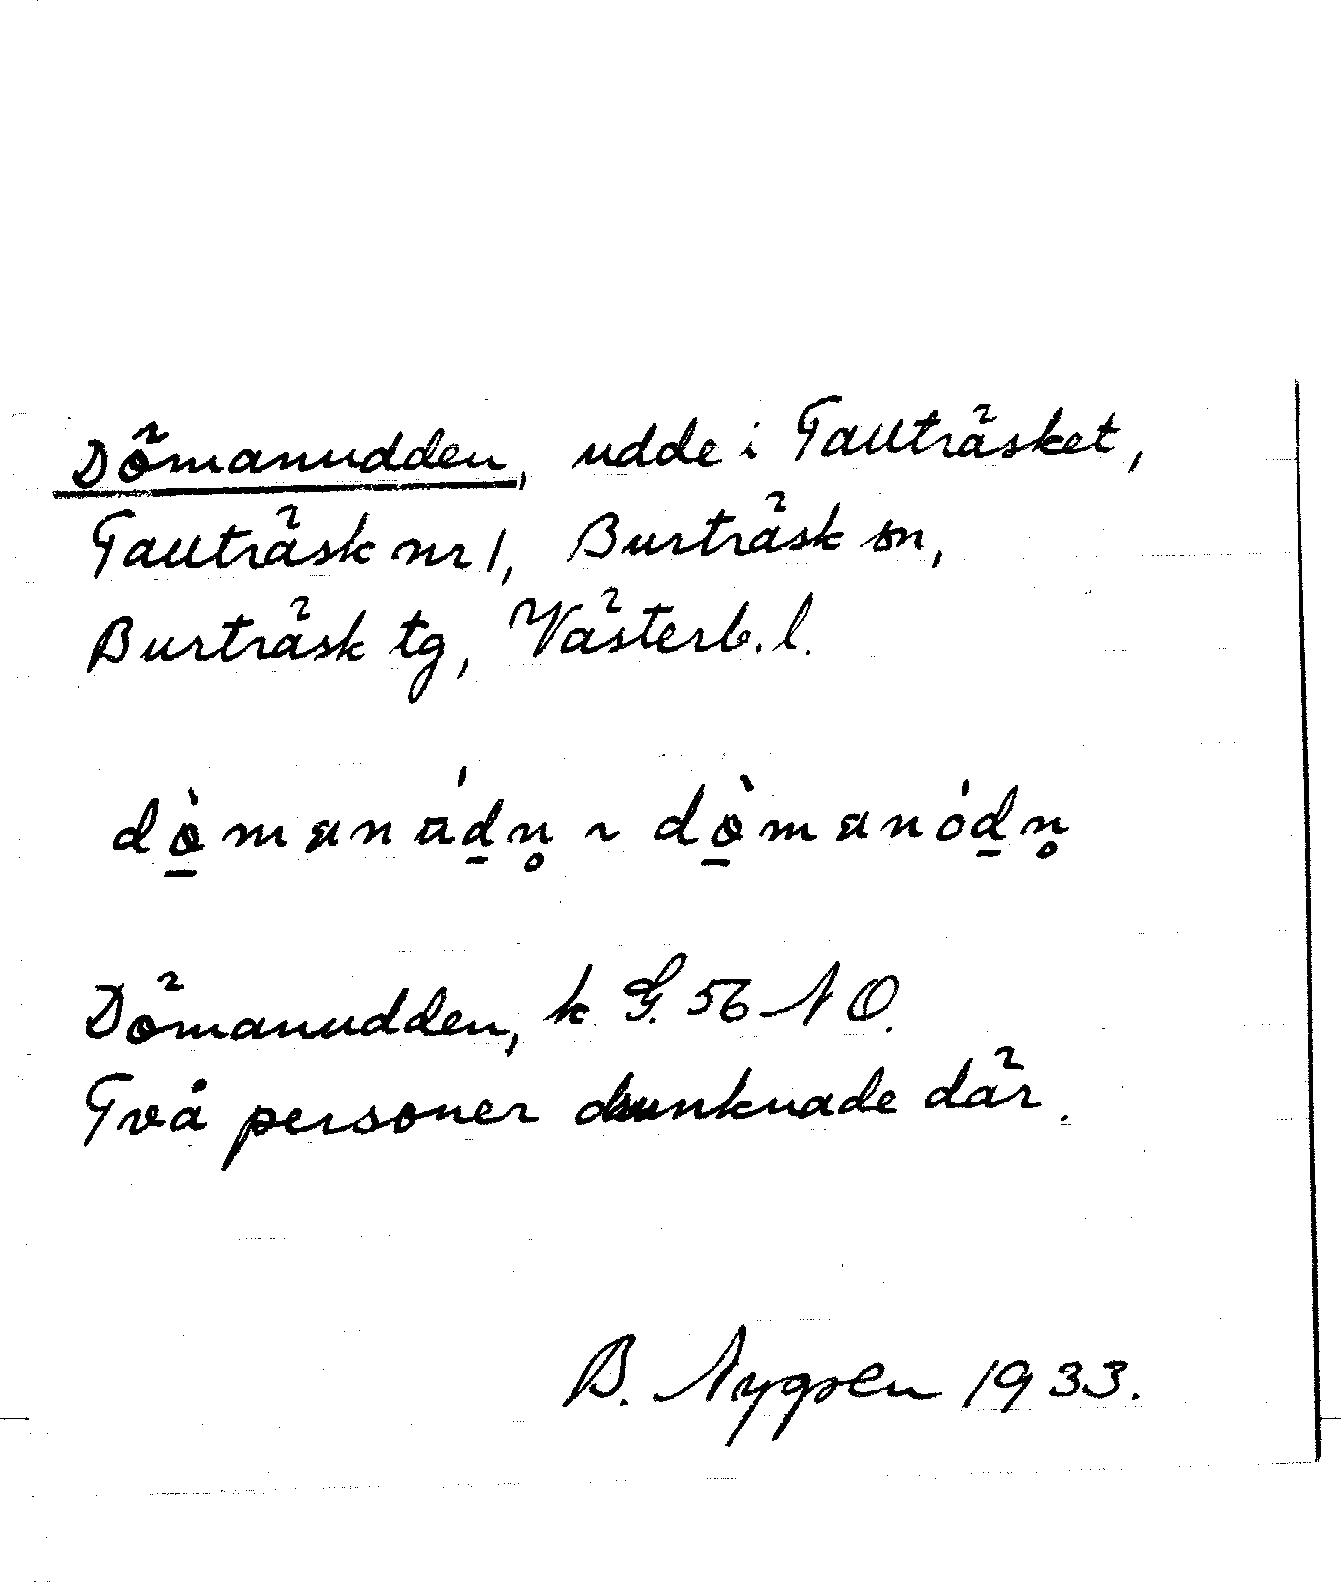 Dömanudden, udde i Tallträsket,
Tallträsk nr 1, Burträsk sn,
Burträsk tg, Västerb. l.
dò̱manádn̥ ~ dò̱manódn̥
Dömanudden, k G. 56 NO.
Två personer drunknade där.
B. Nygren 1933.